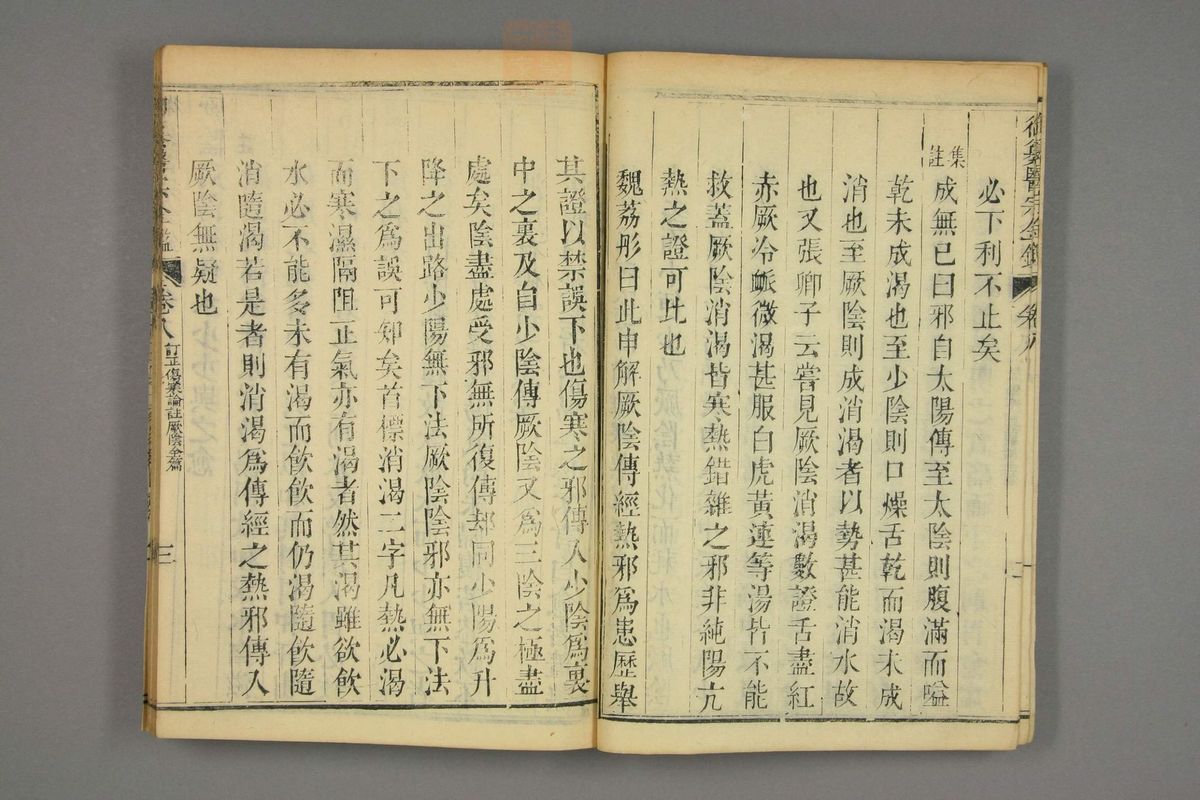 御纂醫宗金鑑 卷八
必下利不止矣
集註
成無已曰邪自太陽傳至太陰則腹滿而嗌
乾未成渴也至少陰則口燥舌乾而渴未成
消也至厥陰則成消渴者以勢甚能消水故
也又張卿子云嘗見厥陰消渴數證舌盡紅
赤厥冷脈微渴甚服白虎黃連等湯皆不能
救蓋厥陰消渴皆寒熱錯雜之邪非純陽亢
熱之證可比也
魏荔彤曰此申解厥陰傳經熱邪爲患歷舉
其證以禁誤下也傷寒之邪傳入少陰爲裏
中之裏及自少陰傳厥陰又爲三陰之極盡
處矣陰盡處受邪無所復傳却同少陽爲升
降之出路少陽無下法厥陰陰邪亦無下法
下之爲誤可知矣首標消渴二字凡熱必渴
而寒濕隔阻正氣亦有渴者然其渴雖欲飲
水必不能多未有渴而飲飲而仍渴隨飲隨
消隨渴若是者則消渴爲傳經之熱邪傳入
厥陰無疑也
卷八 訂正傷寒論註厥陰全篇 三